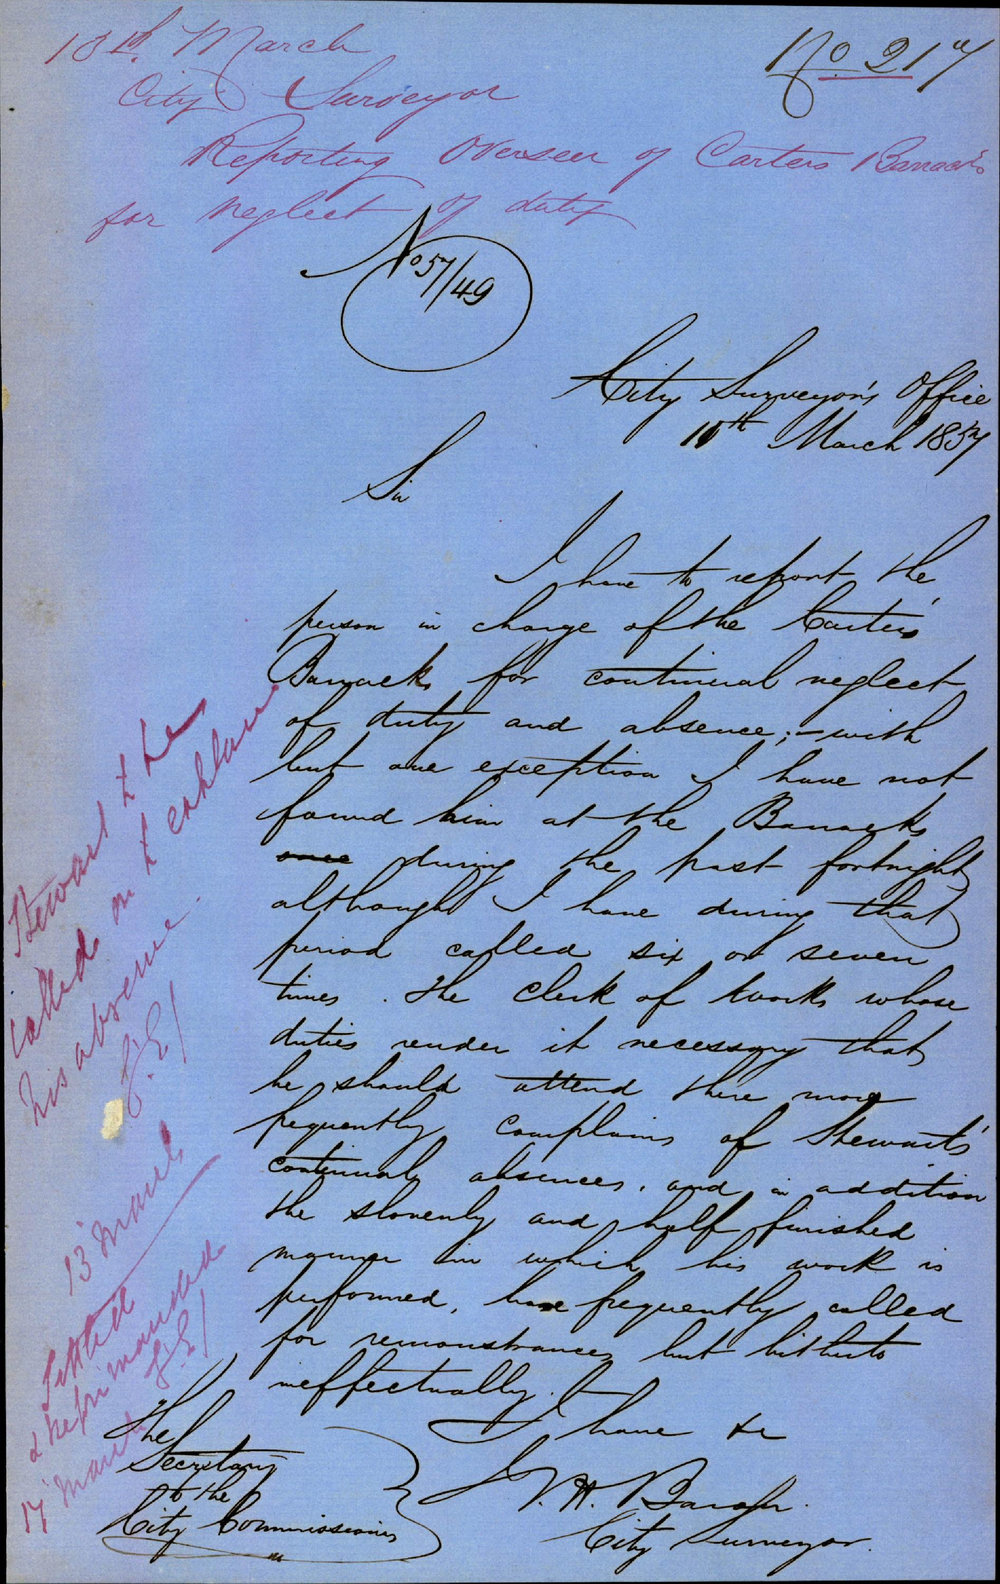 13th. March
No 217
City Surveyor
Reporting Overseer of Carters Barracks
for neglect of duty
No 57/49
City Surveyor's Office
10th March 1857
Sir
I have to report the
person in charge of the Carter's
Barracks for continual neglect
of duty and absence; - with
but one exception I have not
found him at the Barracks
once during the past fortnight
although I have during that
period called six or seven
times. The Clerk of Works whose
duties render it necessary that
he should attend there more
frequently complains of Stewart's
continual absences, and in addition
the slovenly and half finished
manner in which his work is
performed, have frequently called
for remonstrances but hitherto
ineffectually. -
I have &c
City Surveyor.
The
Secretary
to the
City Commissioners
Stewart to be
called on to explain
his absence.
13 March
Settled
& reprimanded
17 March